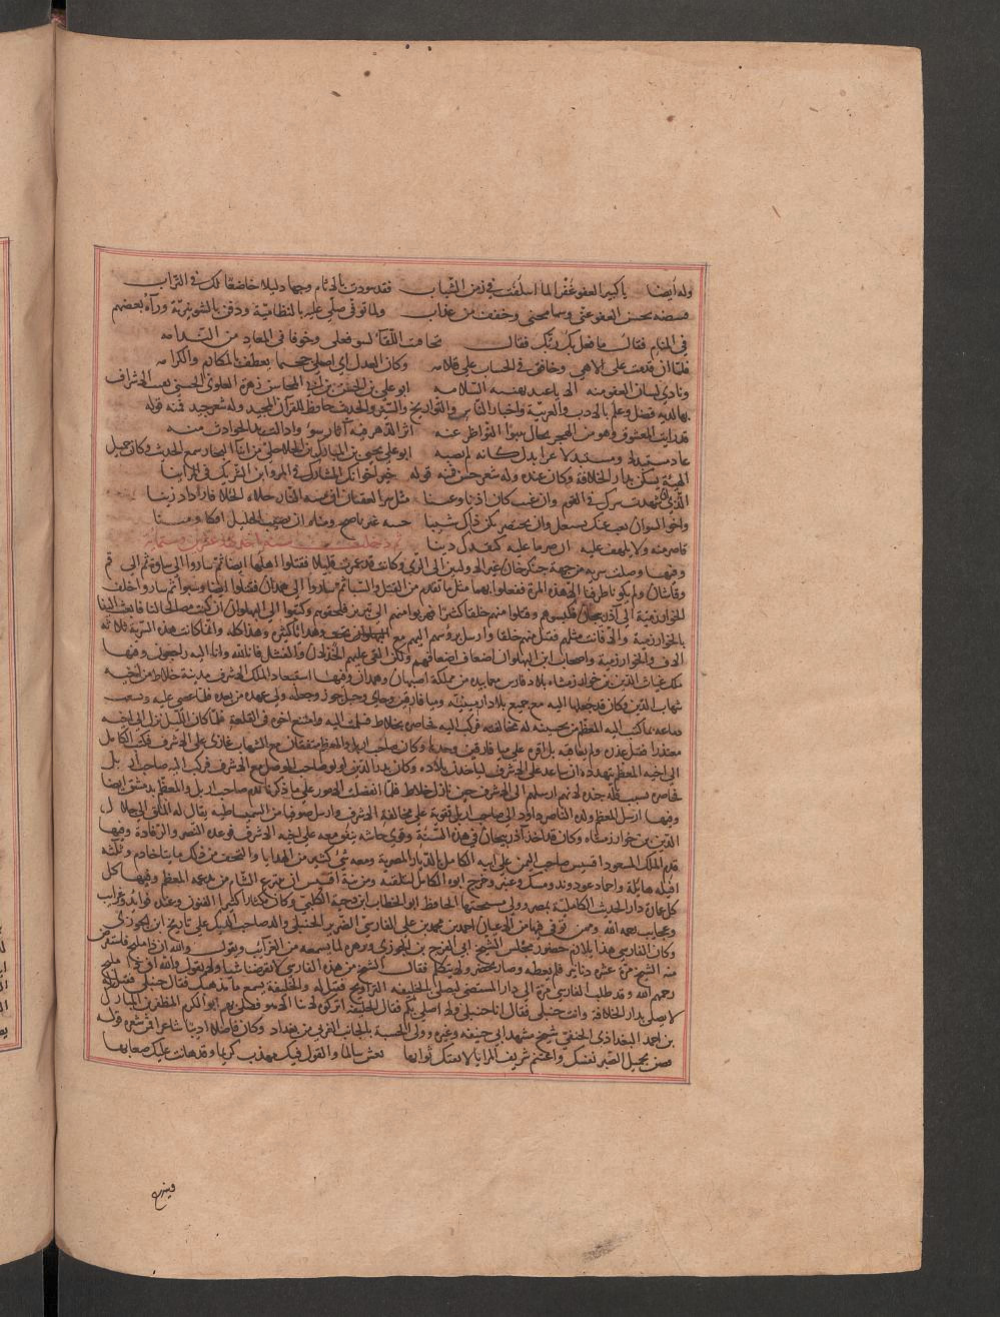 وله أيضا يا كبير العفو غفرا لما اسلفت في زمن الشباب فقد سودت بالآثام وجها ذليلا خاضعا لك في التراب
فبيضه بحسن العفو عني وسامحني وخفف من عذاب ولما توفي صلي عليه بالنظامية ودفن بالشونيزية ورآه بعضهم
في المنام فقال ما فعل بك ربك فقال تحاميت اللقاء لسو فعلي وخوفا في المعاد من الندامه
فلما أن قدمت على الاهي وحاقق في الحساب على قلامه وكان العدل أن اصلى جحيما يعطف بالمكارم والكرامه
وناداني لسان العفو منه الا يا عبد يهنيك السلامه ابو علي بن الحسن بن زهرة العلوي الحسيني نقيب الاشراف
بها لديه فضل وعلم بالادب والعربية واخبار الناس والتواريخ والسير والحديث حافظ للقرآن المجيد وله شعر جيد فمنه قوله
لقد رأيت المعشوق وهو من الهجر بحال تنبو النواظر عنه اثر الدهر فيه آثار سوء وادالت يد الحوادث منه
عاد مستبدلا ومستبدلا عزا بذل كانه لم يصنه ابو علي يحيى بن المبارك بن الجلاجلي من ابناء التجار سمع الحديث وكان جميل
الهيئة يسكن بدار الخلافة وكان عنده وله شعر حسن فمنه قوله خير اخوانك المشارك في المر واين الشريك في المر اينا
الذي ان شهدت سرك في القوم وان غبت كان اذنا وعينا مثل العقيان ان مسه النار جلاه الجلا فازداد زينا
قاصرمنه ولا تلهف عليه ان صرما عليه كنقدك دينا ثم دخلت سنة احدى وعشرين وستمائة
وفيها وصلت سرية من جهة جنكزخان غير الاوليين الى الري وكانت قد عمرت قليلا فقتلوا اهلها ايضا ثم ساروا الى ساوة ثم الى قم
وقاشان ولم يكونا طرقا الا هذه المرة ففعلوا بهما مثل ما تقدم من القتل والسبي ثم ساروا الى همدان فقتلوا ايضا وسبوا ثم ساروا خلف
الخوارزمية الى آذربيجان فكبسوهم وقتلوا منهم خلقا كثيرا فهربوا منهم الى تبريز فلحقوهم وكتبوا الى ابن البهلوان ان كنت مصالحا لنا فابعث الينا
بالخوارزمية والا فانت مثلهم فقتل منهم خلقا وارسل برؤسهم اليهم مع تحف وهدايا كثيرة هذا كله وانما كانت هذه السرية ثلاثة
آلاف والخوارزمية واصحاب ابن البهلوان اضعاف اضعافهم ولكن القى عليهم الخذلان والفشل فانا لله وانا اليه راجعون وفيها
ملك غياث الدين بن خوارزمشاه بلاد فارس مع ما بيده من مملكة اصبهان وهمدان وفيها استعاد الملك الاشرف مدينة خلاط من اخيه
شهاب الدين وكان قد جعلها اليه مع جميع بلاد ارمينية وميافارقين وحاني وجبل جور وجعله ولي عهده من بعده فلما عصى عليه وتشعب
دماغه بما كتب اليه المعظم من تحسينه له مخالفته فركب اليه وحاصره بخلاط فسلمت اليه وامتنع اخوه في القلعة فلما كان الليل نزل الى اخيه
معتذرا فقبل عذره ولم يعاقبه بل اقره على ميافارقين وحدها وكان صاحب اربل والمعظم متفقان مع الشهاب غازي على الاشرف فكتب الكامل
الى اخيه المعظم يتهدده ان ساعد على الاشرف لياخذن بلاده وكان بدر الدين لولو صاحب الموصل مع الاشرف فركب اليه صاحب اربل
فحاصره بسبب قلة جنده لانهم ارسلهم الى الاشرف حين نازل خلاط فلما انفصلت الامور على ما ذكرنا ندم صاحب اربل والمعظم بدمشق ايضا
وفيها ارسل المعظم ولده الناصر داود الى صاحب اربل تقوية على مخالفة الاشرف وارسل صوفيا من السميساطية يقال له الملق الى جلال
الدين بن خوارزمشاه وكان قد اخذ آذربيجان في هذه السنة وقوي جاشه يتفق معه على اخيه الاشرف فوعده النصر والرفادة وفيها
قدم الملك المسعود اقسيس صاحب اليمن على ابيه الكامل بالديار المصرية ومعه شئ كثير من الهدايا والتحف من ذلك مايتا خادم وثلثة
افيلة هائلة واحمال عود وند ومسك وعنبر وخرج ابوه الكامل لتلقيه ومن نية اقسيس ان ينتزع الشام من يد عمه المعظم وفيها كمل
عمارة دار الحديث الكاملية بمصر وولي مشيختها الحافظ ابو الخطاب ابن دحية الكلبي وكان مكثارا كثير الفنون وعنده فوائد وغرايب
وعجايب رحمه الله وممن توفي فيها من الاعيان احمد بن محمد بن علي الفارسي الضرير الحنبلي والد صاحب الذيل على تاريخ ابن الجوزي
وكان الفارسي هذا يلازم حضور مجلس الشيخ ابي الفرج بن الجوزي ويزهره لما يسمعه من الغرايب ويقول والله ان ذا مليح فاستقرض
منه الشيخ مرة عشرة دنانير فلم يعطه وصار يحضر ولا يتكلم فقال الشيخ مرة هذا الفارسي لا يقرضنا شيا ولا يقول والله ان ذا مليح
رحمهم الله وقد طلب الفارسي مرة الى دار المستضئ ليصلي بالخليفة التراويح فقيل له والخليفة يسمع ما مذهبك فقال حنبلي فقيل له
لا تصلي بدار الخلافة وانت حنبلي فقال انا حنبلي ولا اصلي بكم فقال الخليفة اتركوه لا يصلي بنا الا هو فصلى بهم ابو الكرم المظفر بن المبارك
بن احمد البغدادي الحنفي شيخ مشهد ابي حنيفة وغيره وولي الحسبة بالجانب الغربي من بغداد وكان فاضلا اديبا شاعرا فمن شعره قوله
فصن بجميل الصبر نفسك واغتنم شريف المزايا لا يفتك ثوابها تعش سالما والقول فيك مهذب كريما وقد هانت عليك صعابها
فينزع